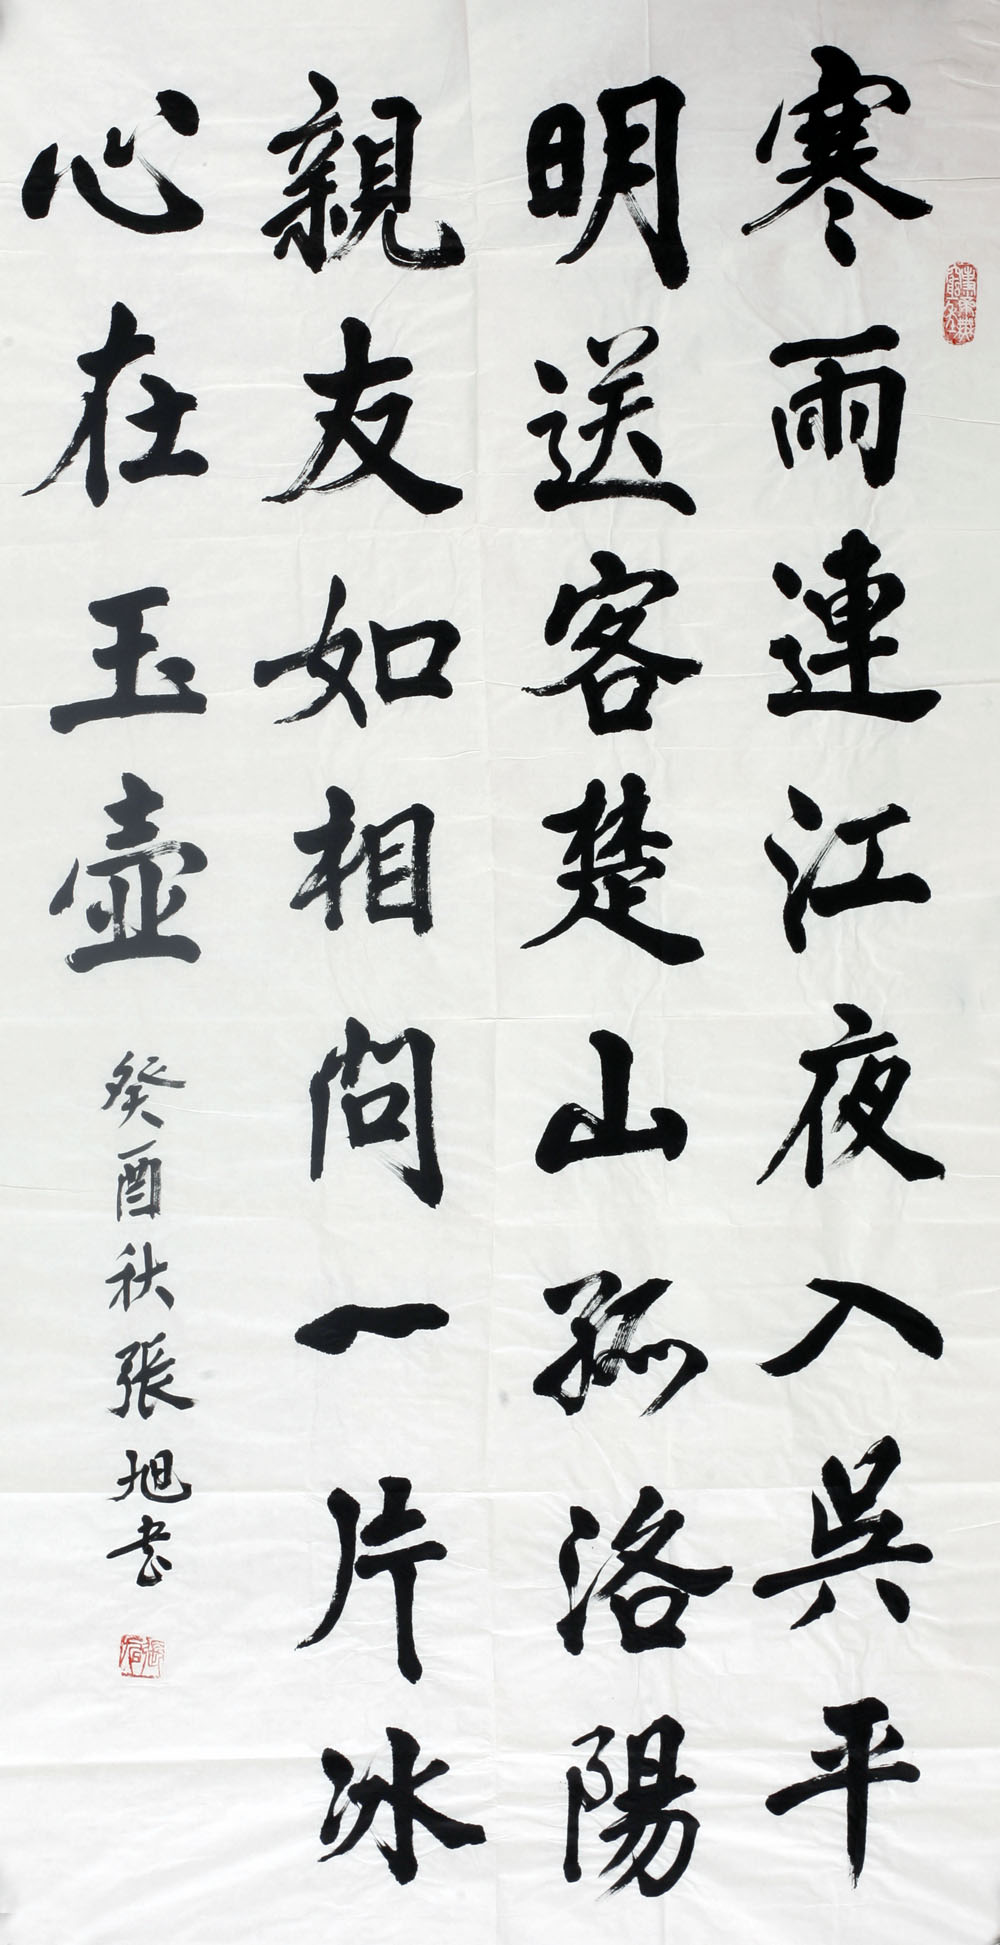 寒雨連江夜入吳平
明送客楚山孤洛陽
親友如相問一片冰
心在玉壺
癸酉秋張旭書